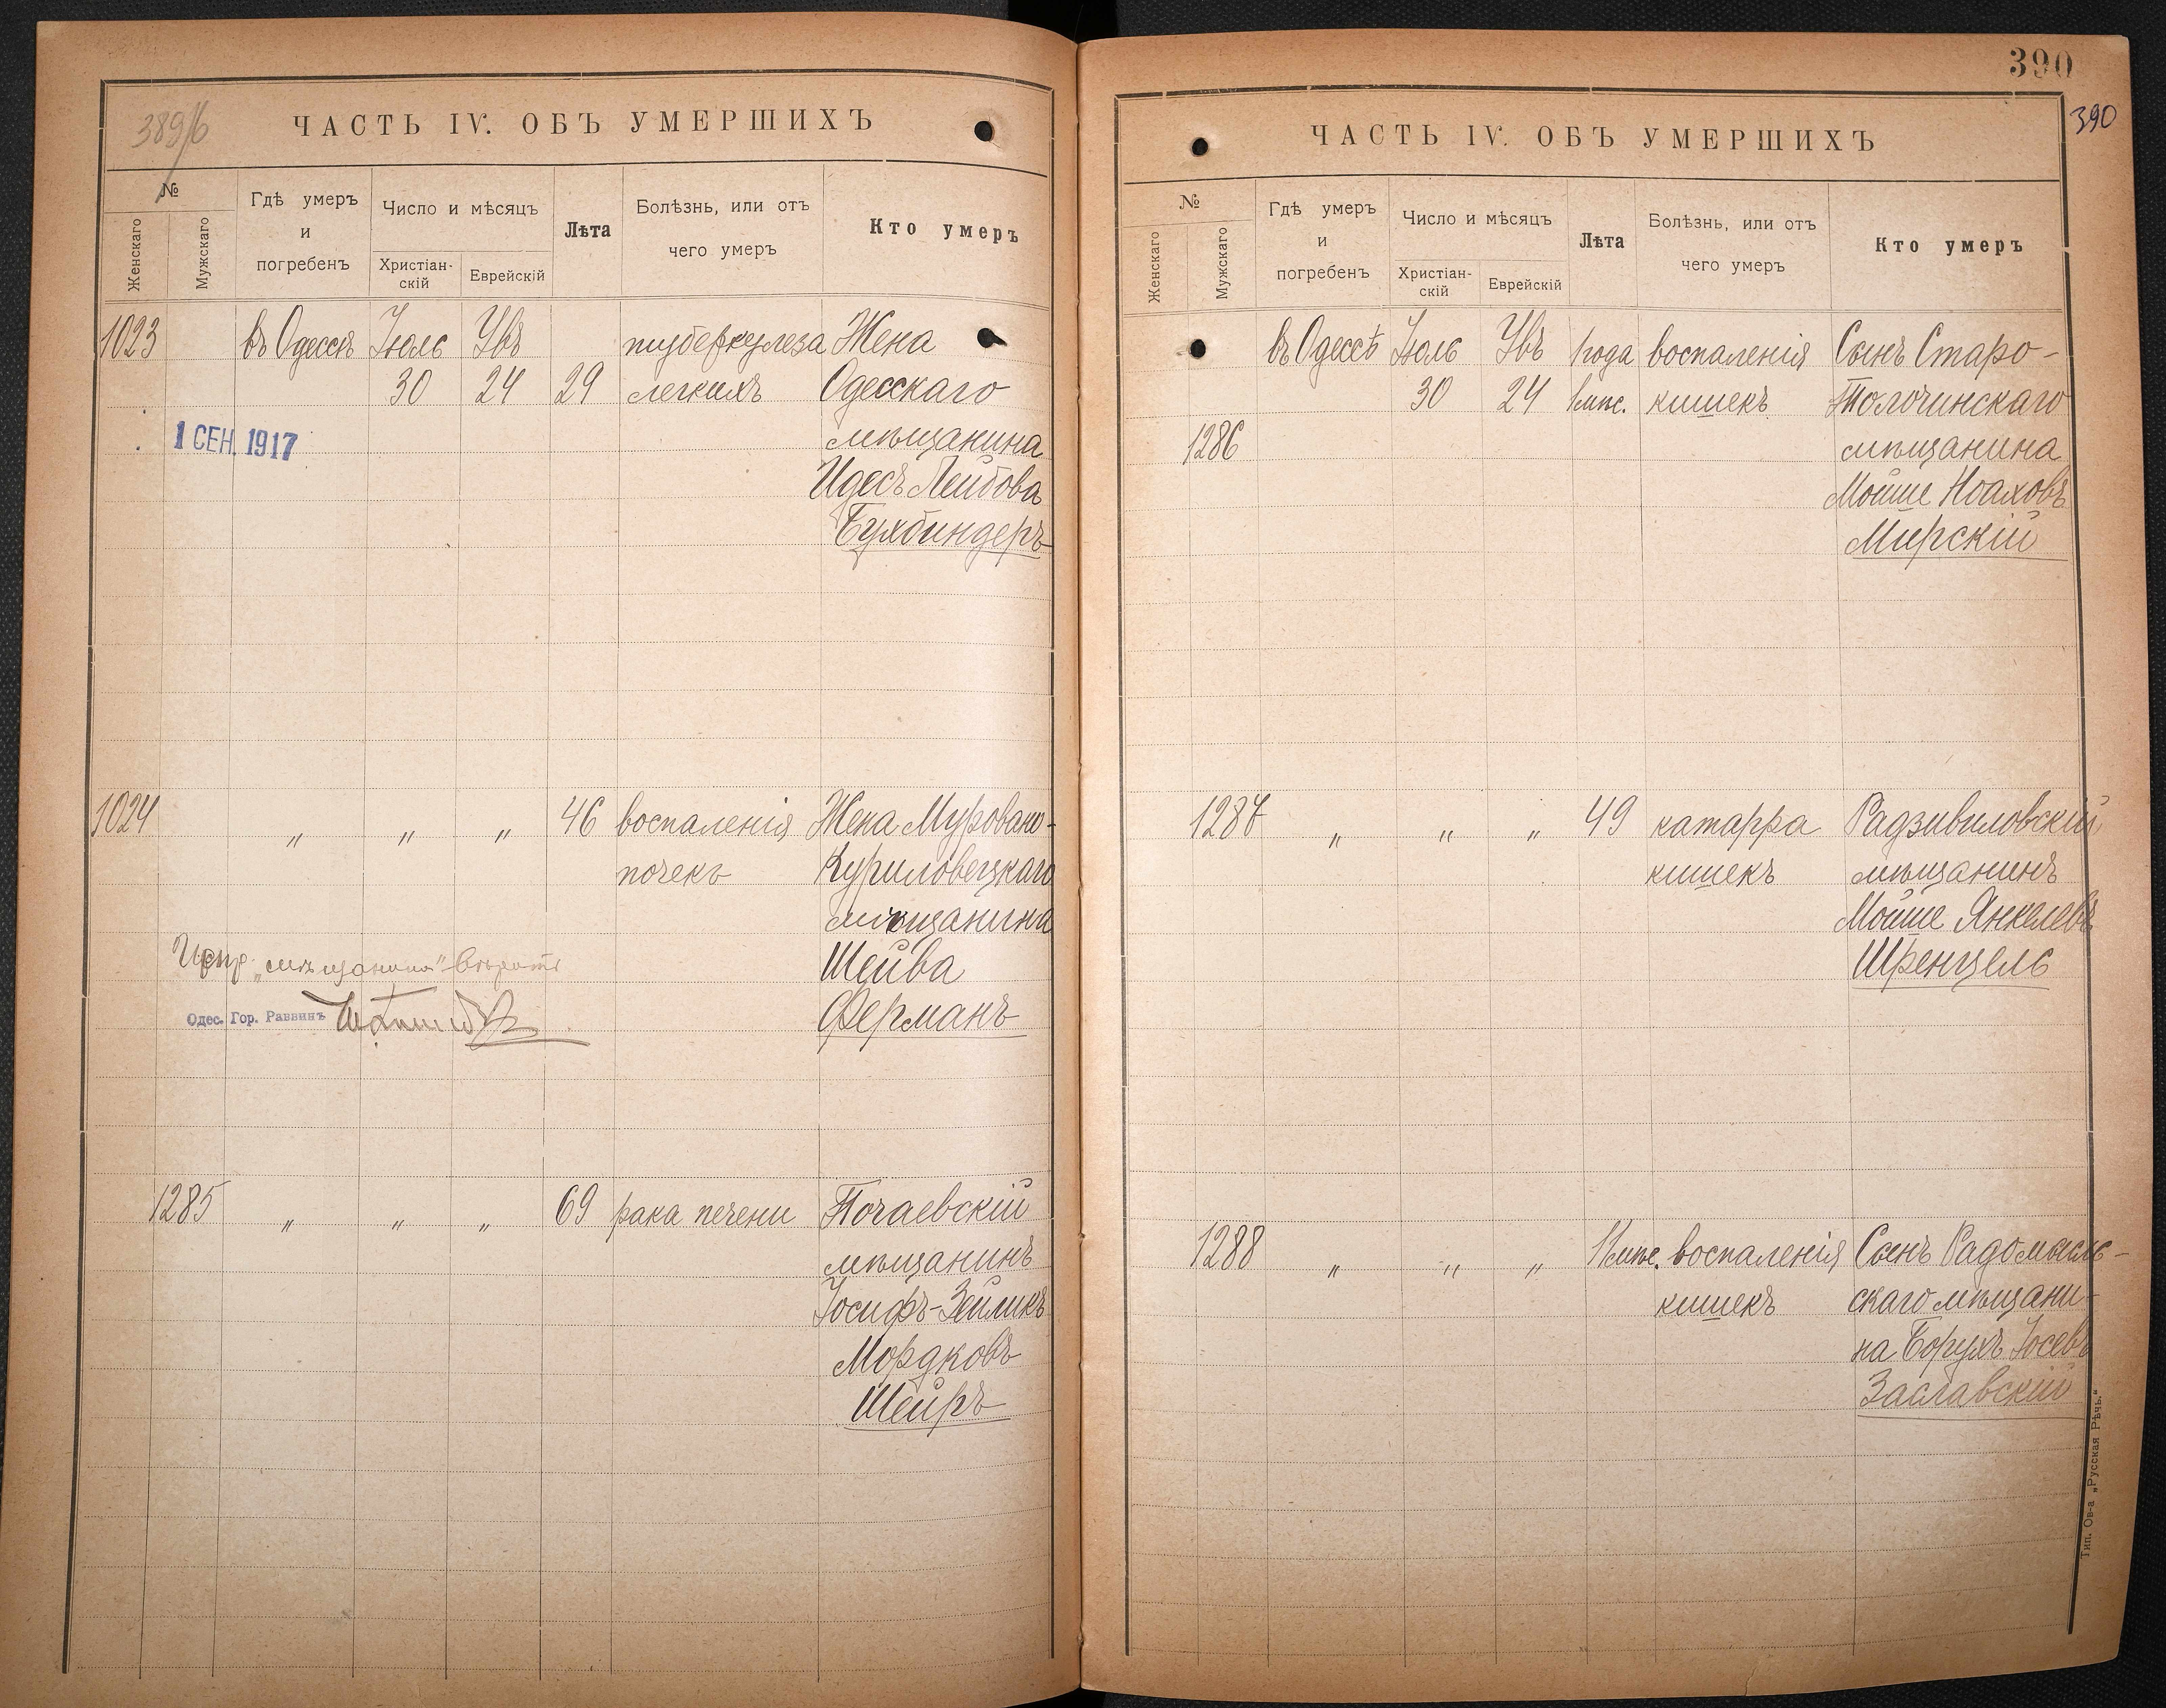 389/б
ЧАСТЬ IV. ОБЪ УМЕРШИХЪ
№
Женскаго
Мужскаго
Гдѣ умеръ
и
погребенъ
Число и мѣсяцъ
Христіан-
скій
Еврейскій
Лѣта
Болѣзнь, или отъ
чего умеръ
Кто умеръ
1023 въ Одессѣ Іюль Увъ туберкулеза Жена
30 24 29 легкихъ Одесскаго
1 СЕН. 1917 мѣщанина
Идесъ Лейбова
Бухбиндеръ
1024 " " " 46 воспаленія Жена Муровано-
почекъ Куриловецкаго
мѣщанина
Испр. „мѣщанина" вѣрить Шейва
Одес. Гор. Раввинъ Ферманъ
1285 " " " 69 рака печени Почаевскій
мѣщанинъ
Іосифъ-Зейликъ
Мордковъ
Шейръ
390
390
ЧАСТЬ IV. ОБЪ УМЕРШИХЪ
№
Женскаго
Мужскаго
Гдѣ умеръ
и
погребенъ
Число и мѣсяцъ
Христіан-
скій
Еврейскій
Лѣта
Болѣзнь, или отъ
чего умеръ
Кто умеръ
въ Одессѣ Іюль Увъ 1 года воспаленія Сынъ Старо-
30 24 1 мѣс. кишекъ Толочинскаго
1286 мѣщанина
Мойше Ноаховъ
Мирскій
1287 " " " 49 катарра Радзивиловскій
кишекъ мѣщанинъ
Мойше Янкелевъ
Шренцель
1288 " " " 11 мѣс. воспаленія Сынъ Радомысль-
кишекъ скаго мѣщани-
на Борухъ Іосевъ
Заславскій
Тип. Ов-а „Русская Рѣчь."